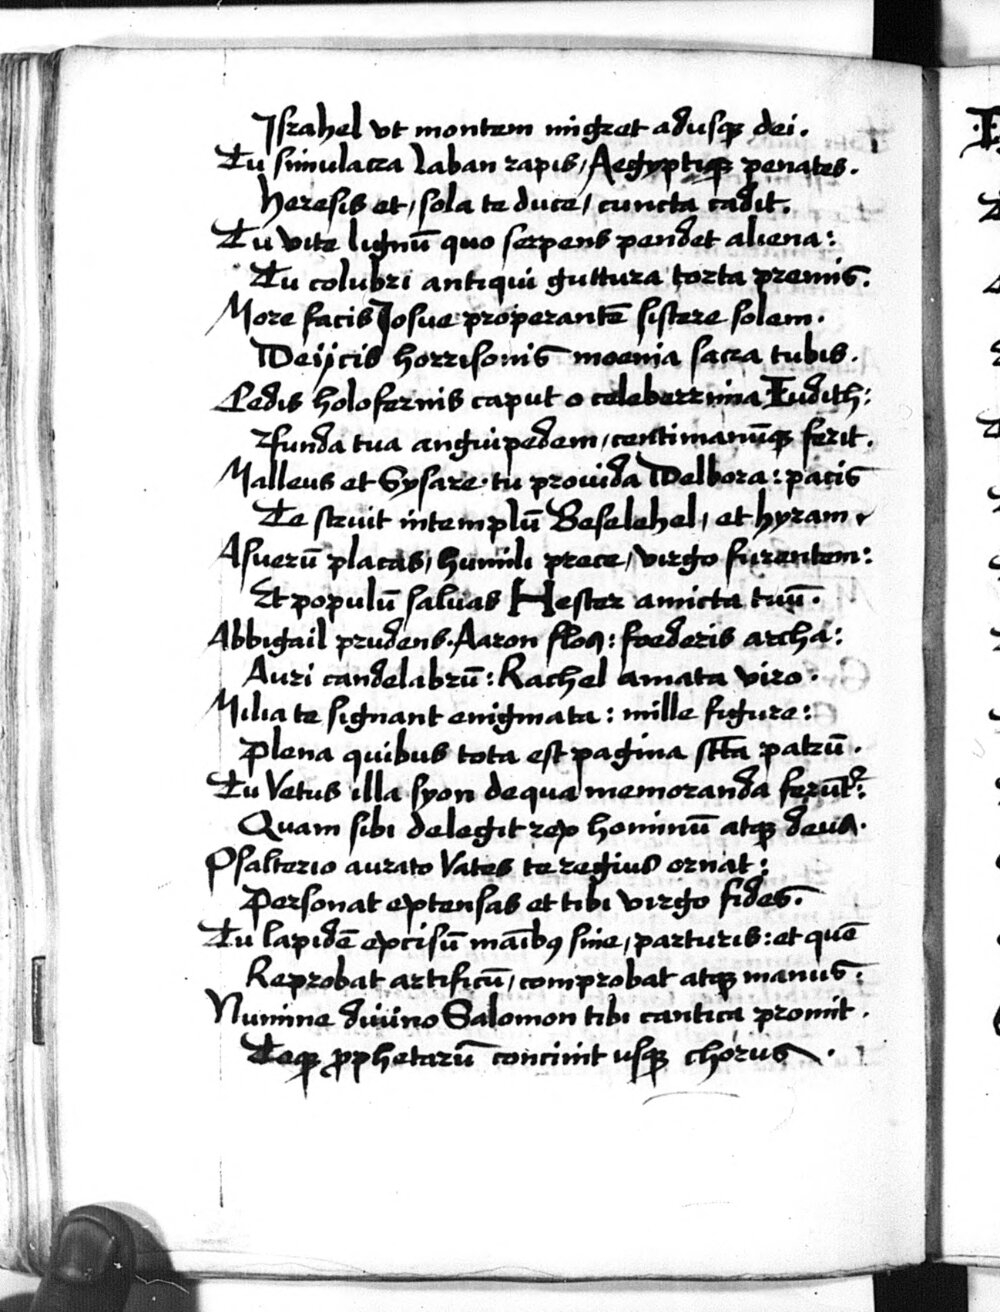 Israhel vt montem migret adusqꝫ dei.
Tu simulacra laban rapis / Aegyptiqꝫ penates.
Heresis et / sola te duce / cuncta cadit.
Tu vite lignū quo serpens pendet aliena:
Tu colubri antiqui guttura torta premis.
More facis Josue properantē sistere solem.
Deijcis horrisonis moenia sacra tubis.
Cedis holofernis caput o celeberrima Iudith:
funda tua anguipedem / centimanūqꝫ ferit.
Malleus et Sysare. tu prouida Delbora: pacis
Te struit in templū Beselehel / et hyram
Asuerū placas / humili prece / virgo furentem:
Et populū saluas Hester amicta tuū.
Abbigail prudens. Aaron flos: foederis archa:
Auri candelabrū: Rachel amata viro.
Milia te signant enigmata: mille figure:
Plena quibus tota est pagina sc̄ta patrū.
Tu Vetus illa syon de qua memoranda ferūt᷑:
Quam sibi delegit rex hominū atqꝫ deus.
Psalterio aurato Vates te regius ornat:
Personat extensas et tibi virgo fides.
Tu lapidē excisū māibꝰ sine / parturis: et quē
Reprobat artificū / comprobat atqꝫ manus:
Numine diuino Salomon tibi cantica promit.
Teqꝫ ꝓphetarū concinit usqꝫ chorus.